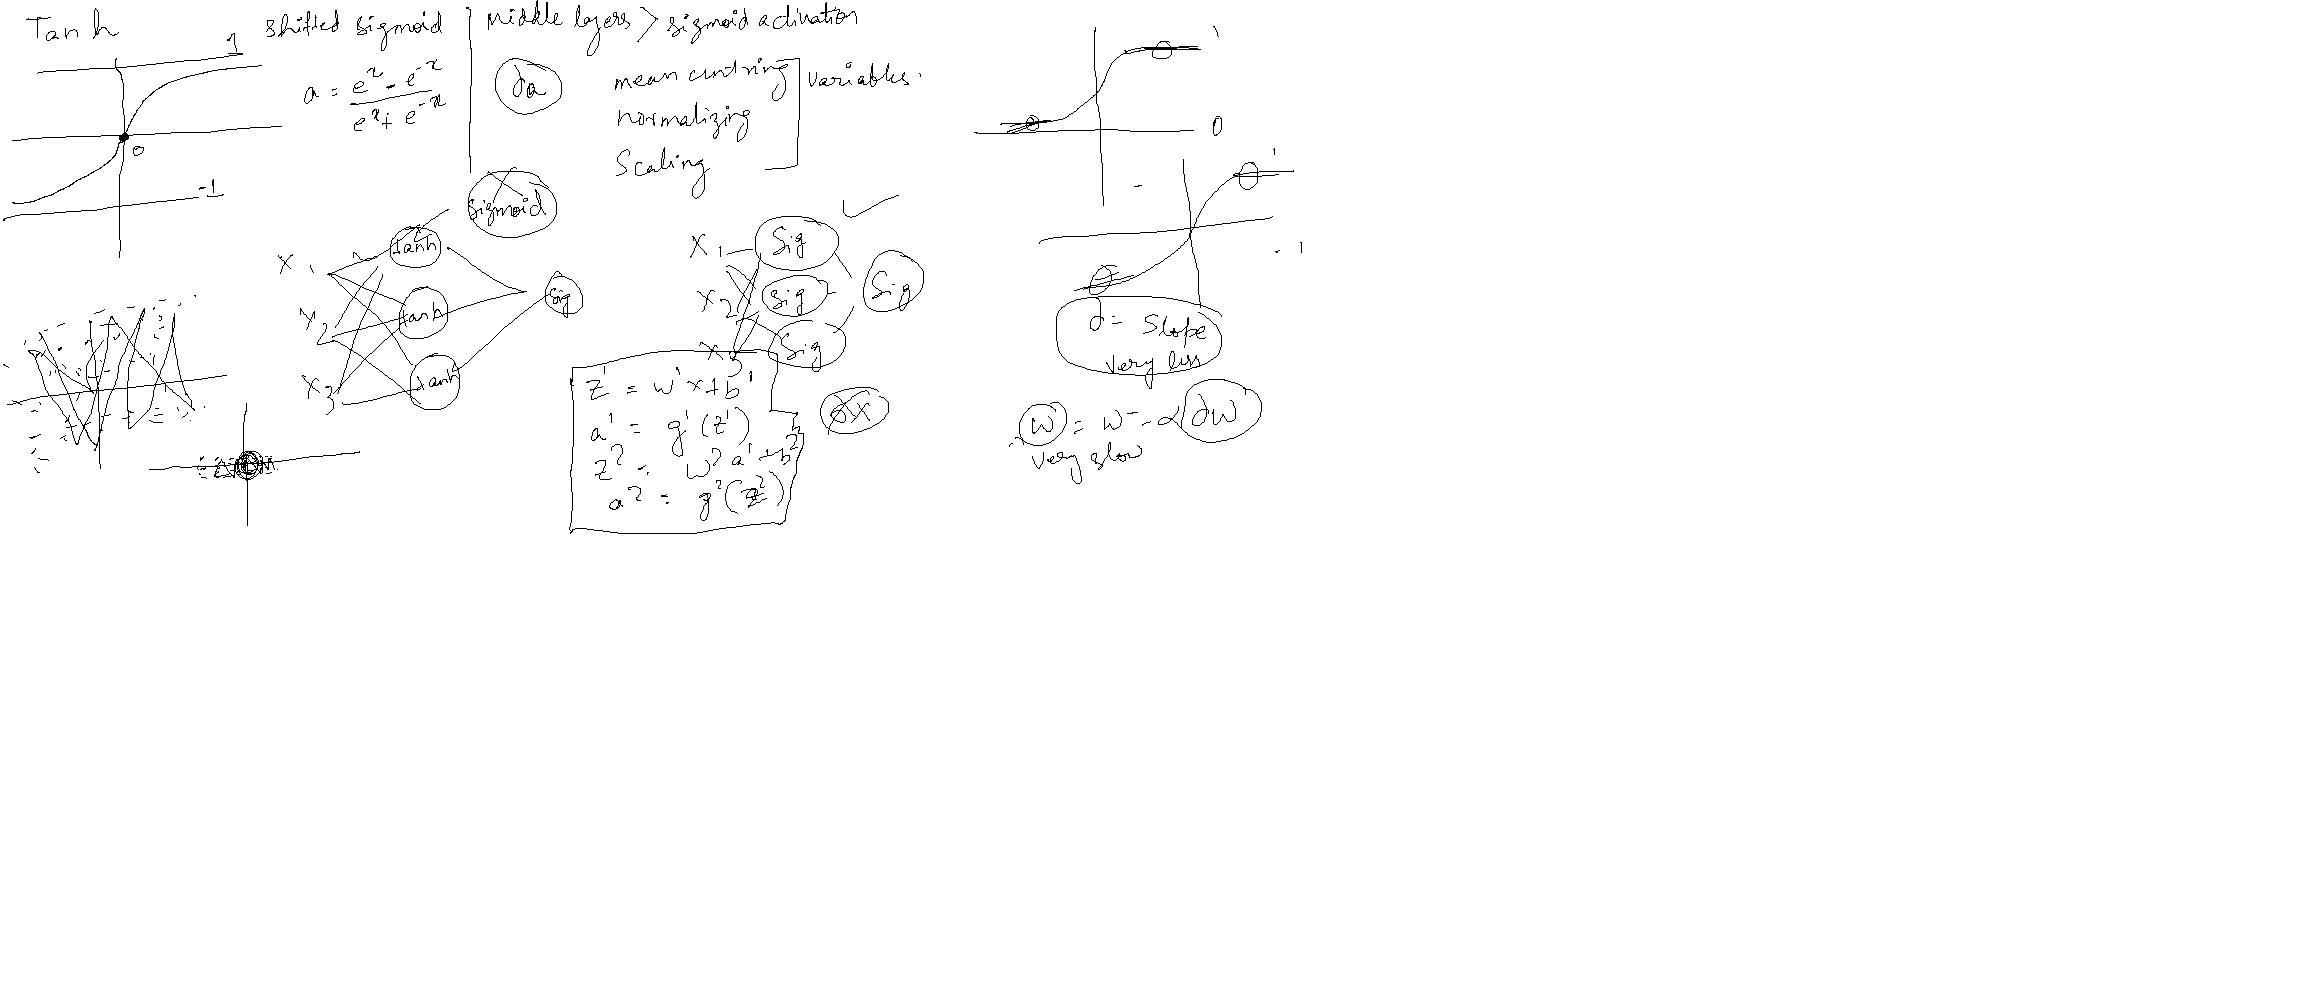 Tanh
shifted sigmoid
1
a = e^x - e^-x / e^x + e^-x
0
-1
Middle layers > sigmoid activation
∂a
mean centring
normalizing
Scaling
variables.
sigmoid
x1
x2
x3
tanh
tanh
tanh
sig
x1
x2
x3
Sig
Sig
Sig
Sig
z¹ = w¹x + b¹
a¹ = g¹(z¹)
z² = w²a¹ + b²
a² = g²(z²)
∂x
1
0
1
-1
∂ = slope
very less
w = w - α ∂w
very slow